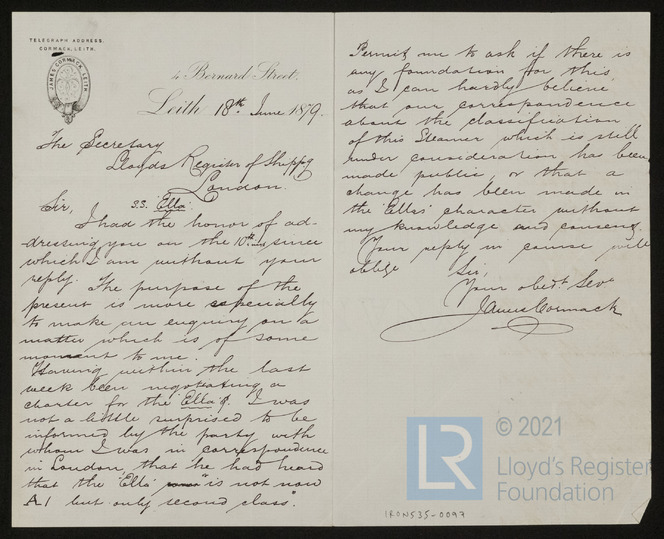 TELEGRAPH ADDRESS.
CORMACK, LEITH.
JAMES CORMACK, LEITH
4 Bernard Street.
Leith 18th June 1879.
The Secretary
Lloyds Register of Shippg
London.
Sir, S.S. "Ella"
I had the honor of ad-
dressing you on the 10th since
which I am without your
reply. The purpose of the
present is more especially
to make an enquiry on a
matter which is of some
moment to me.
Having within the last
week been negotiating a
charter for the "Ella" I was
not a little surprised to be
informed by the party with
whom I was in correspondence
in London, that he had heard
that the "Ella" "is not now
A1 but only second class".
Permit me to ask if there is
any foundation for this
as I can hardly believe
that our correspondence
about the classification
of this Steamer which is still
under consideration has been
made public, or that a
change has been made in
the Ella's character without
my knowledge and consent.
Your reply in course will
oblige Sir,
Your obedt Servt
James Cormack
LR © 2021
Lloyd's Register
Foundation
IRON535-0097